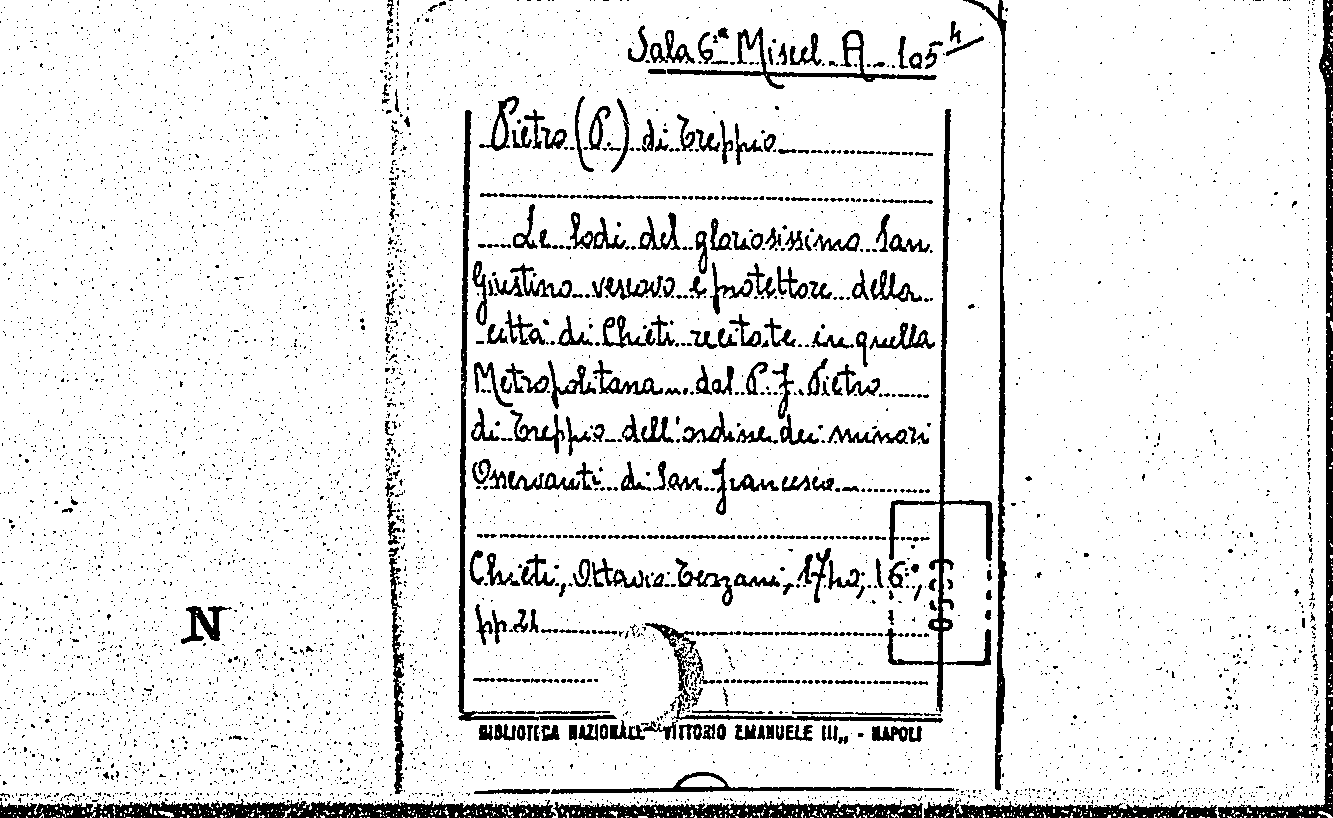 Sala 6ª Miscel. A. 105 4
Pietro (P.) di Treppio
Le lodi del gloriosissimo San
Giustino vescovo e protettore della
città di Chieti recitate in quella
Metropolitana dal P. F. Pietro
di Treppio dell'ordine dei minori
Osservanti di San Francesco
Chieti, Ottavio Terzani, 16°,
pp. 21
0503
N
BIBLIOTECA NAZIONALE "VITTORIO EMANUELE III„ - NAPOLI